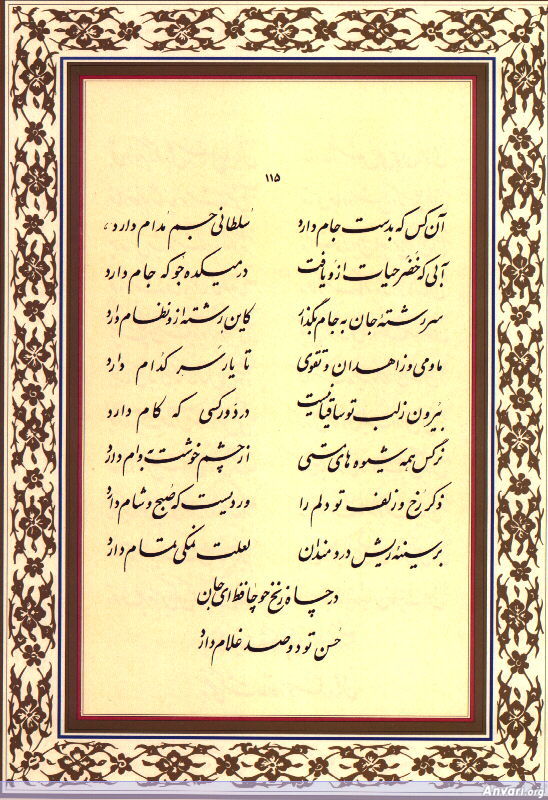 ۱۱۵
آن کس که بدست جام دارد سلطانی جم مدام دارد
آبی که خضر حیات ازو یافت در میکده جو که جام دارد
سررشتهٔ جان به جام بگذار کاین رشته ازو نظام دارد
ما و می و زاهدان و تقوی تا یار سر کدام دارد
بیرون ز لب تو ساقیا نیست در دور کسی که کام دارد
نرگس همه شیوه های مستی از چشم خوشت به وام دارد
ذکر رخ و زلف تو دلم را وردیست که صبح و شام دارد
بر سینهٔ ریش دردمندان لعلت نمکی تمام دارد
در چاه ذقن چو حافظ ای جان
حسن تو دو صد غلام دارد
Anvari.org